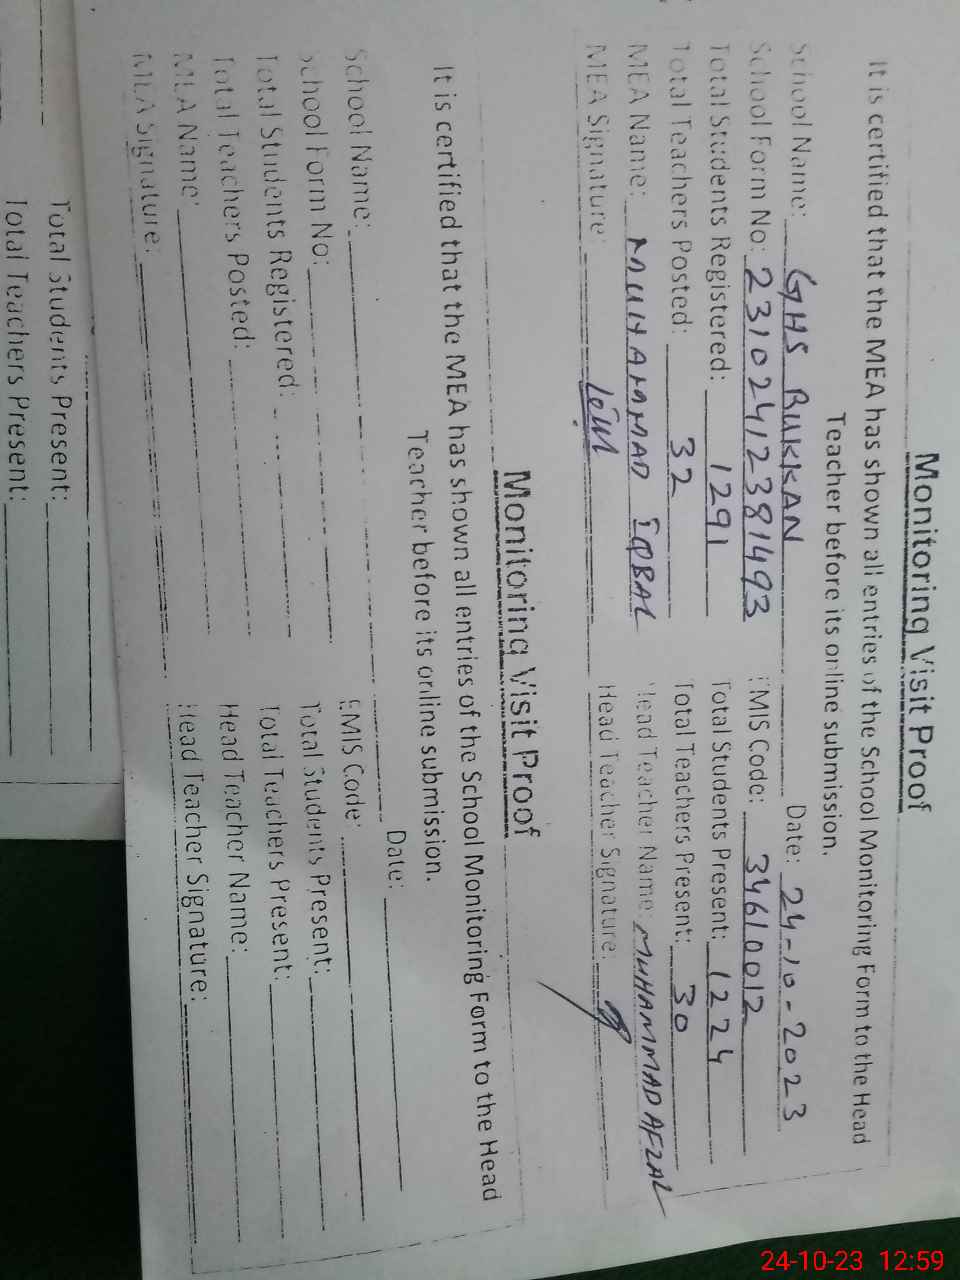 Monitoring Visit Proof
It is certified that the MEA has shown all entries of the School Monitoring Form to the Head
Teacher before its online submission.
School Name: GHS BUKKAN Date: 24-10-2023
School Form No: 23102412381493 EMIS Code: 34610012
Total Students Registered: 1291 Total Students Present: 1224
Total Teachers Posted: 32 Total Teachers Present: 30
MEA Name: MUHAMMAD IQBAL Head Teacher Name: MUHAMMAD AFZAL
MEA Signature: Head Teacher Signature:
Monitoring Visit Proof
It is certified that the MEA has shown all entries of the School Monitoring Form to the Head
Teacher before its online submission.
School Name: Date:
School Form No: EMIS Code:
Total Students Registered: Total Students Present:
Total Teachers Posted: Total Teachers Present:
MEA Name: Head Teacher Name:
MEA Signature: Head Teacher Signature:
Total Students Present:
Total Teachers Present:
24-10-23 12:59